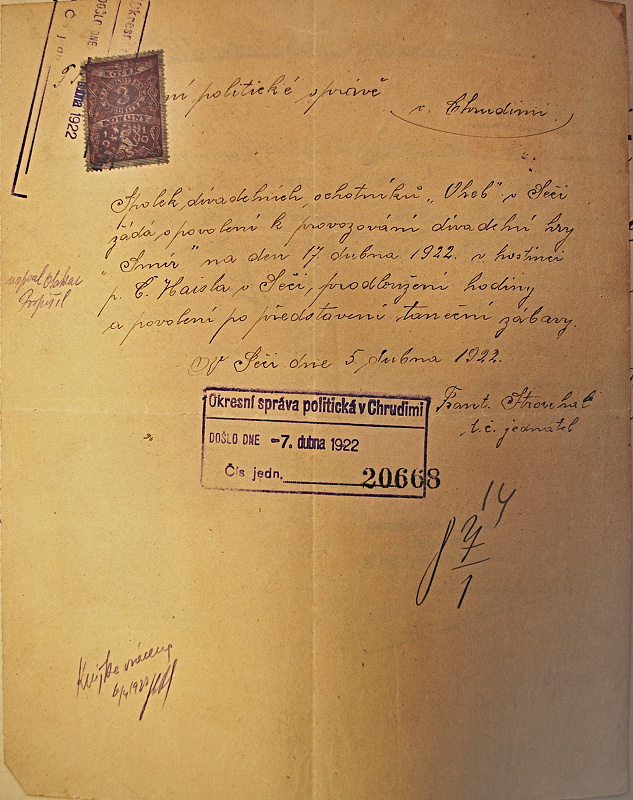 Okresní
DOŠLO DNE
dubna 1922
3
ní politické správě
v Chrudimi.
Spolek divadelních ochotníků „Vheb" v Seči
žádá o povolení k provozování divadelní hry
"Smír" na den 17. dubna 1922. v hostinci
p. Č. Haisla v Seči, prodloužení hodiny
a povolení po představení taneční zábavy.
V Seči dne 5. dubna 1922.
napsal Otakar
Pospíšil
Frant. Strouhal
t. č. jednatel
Okresní správa politická v Chrudimi
DOŠLO DNE -7. dubna 1922
Čís jedn. 20668
14
7
1
Knížka vrácena